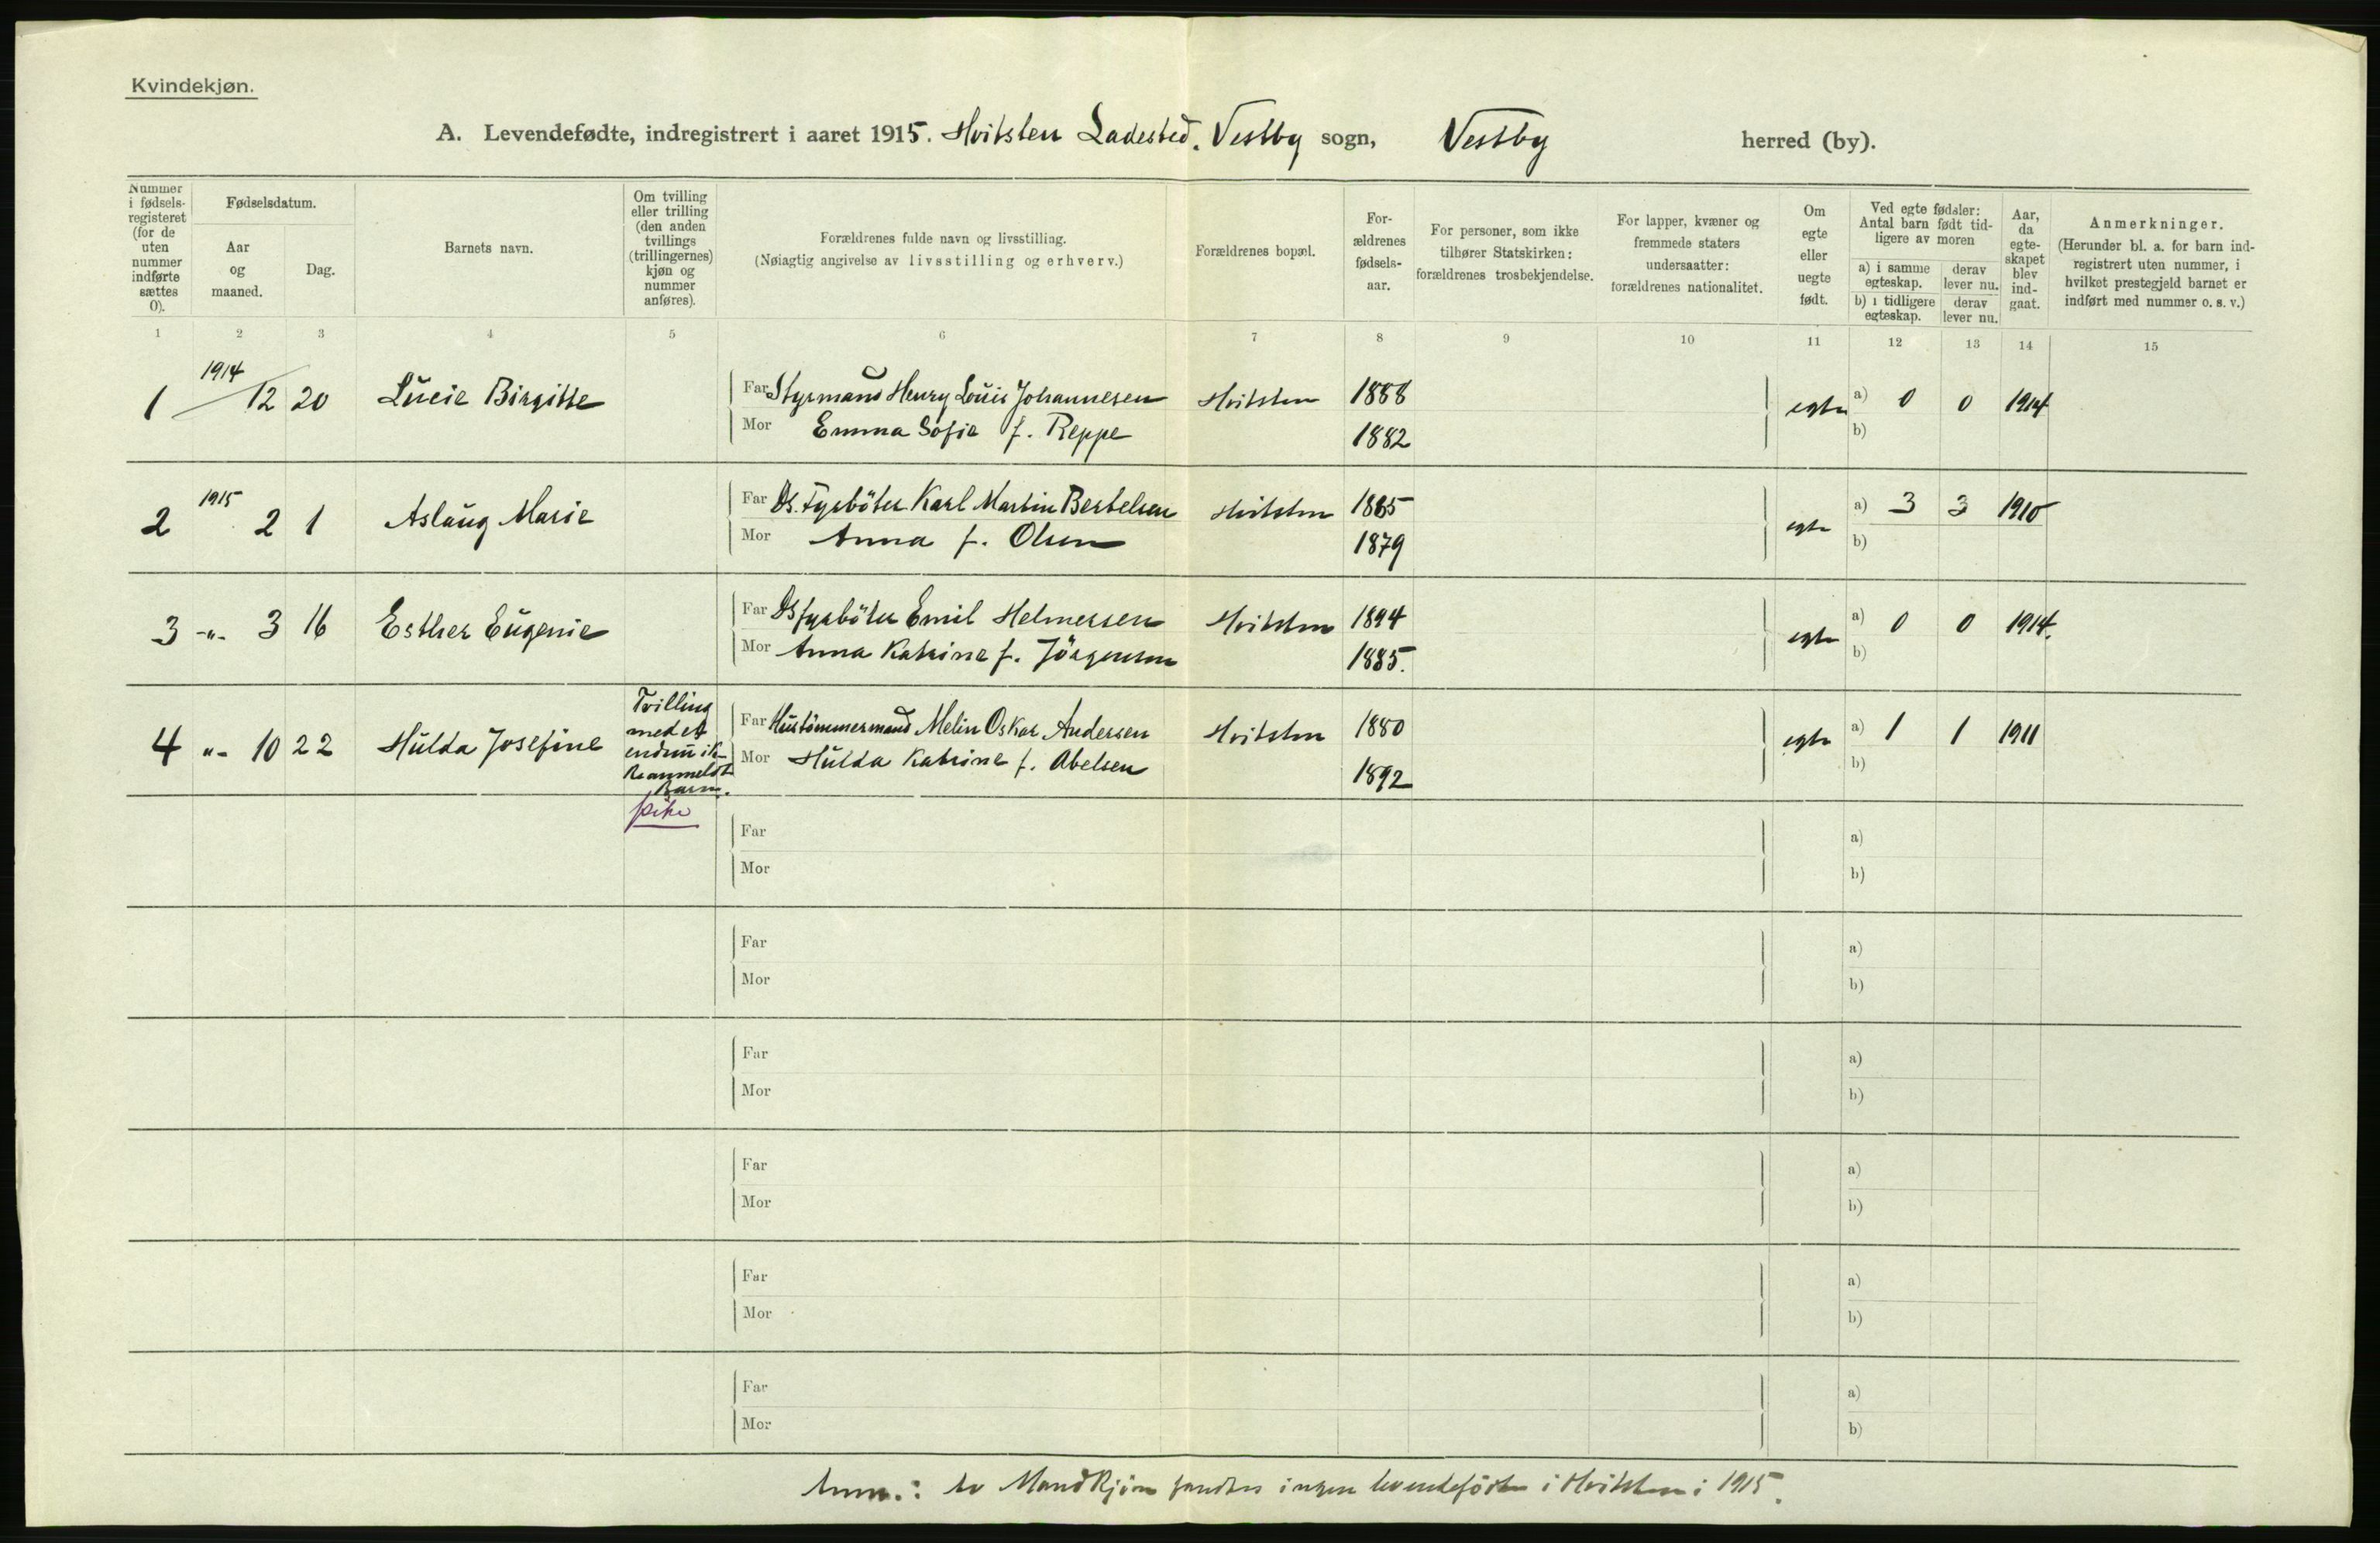 Kvindekjøn.
A. Levendefødte, indregistrert i aaret 1915. Hvitsten Ladested. Vestby sogn, Vestby herred (by).
Nummer i fødsels-registeret (for de uten nummer indførte sættes 0).
Fødselsdatum.
Aar og maaned.
Dag.
Barnets navn.
Om tvilling eller trilling (den anden tvillings (trillingernes) kjøn og nummer anføres).
Forældrenes fulde navn og livsstilling.
(Nøiagtig angivelse av livsstilling og erhverv.)
Forældrenes bopæl.
For-ældrenes fødsels-aar.
For personer, som ikke tilhører Statskirken: forældrenes trosbekjendelse.
For lapper, kvæner og fremmede staters undersaatter: forældrenes nationalitet.
Om egte eller uegte født.
Ved egte fødsler: Antal barn født tid-ligere av moren
a) i samme egteskap.
derav lever nu.
b) i tidligere egteskap.
derav lever nu.
Aar, da egte-skapet blev ind-gaat.
Anmerkninger.
(Herunder bl. a. for barn ind-registrert uten nummer, i hvilket prestegjeld barnet er indført med nummer o. s. v.)
1 2 3 4 5 6 7 8 9 10 11 12 13 14 15
1 1914 12 20 Lucie Birgitte Far Styrmand Henry Louis Johannesen Hvitsten 1888 egte a) 0 0 1914
Mor Emma Sofie f. Reppe 1882 b)
2 1915 2 1 Aslaug Marie Far Ds. Fyrböter Karl Martin Bertelsen Hvitsten 1885 egte a) 3 3 1910
Mor Anna f. Olsen 1879 b)
3 -"- 3 16 Esther Eugenie Far Ds fyrböter Emil Helmersen Hvitsten 1894 egte a) 0 0 1914.
Mor Anna Katrine f. Jörgensen 1885. b)
4 "- 10 22 Hulda Josefine Tvilling med et endnu ik-ke anmeldt Barn. pike Far Hustömmermand Melin Oskar Andersen Hvitsten 1880 egte a) 1 1 1911
Mor Hulda Katrine f. Abelsen 1892 b)
Far a)
Mor b)
Far a)
Mor b)
Far a)
Mor b)
Far a)
Mor b)
Far a)
Mor b)
Far a)
Mor b)
Anm.: Av Mandkjön fandtes ingen levendefödte i Hvitsten i 1915.